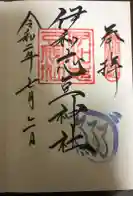 奉拝
伊和志豆神社
令和二年七月日